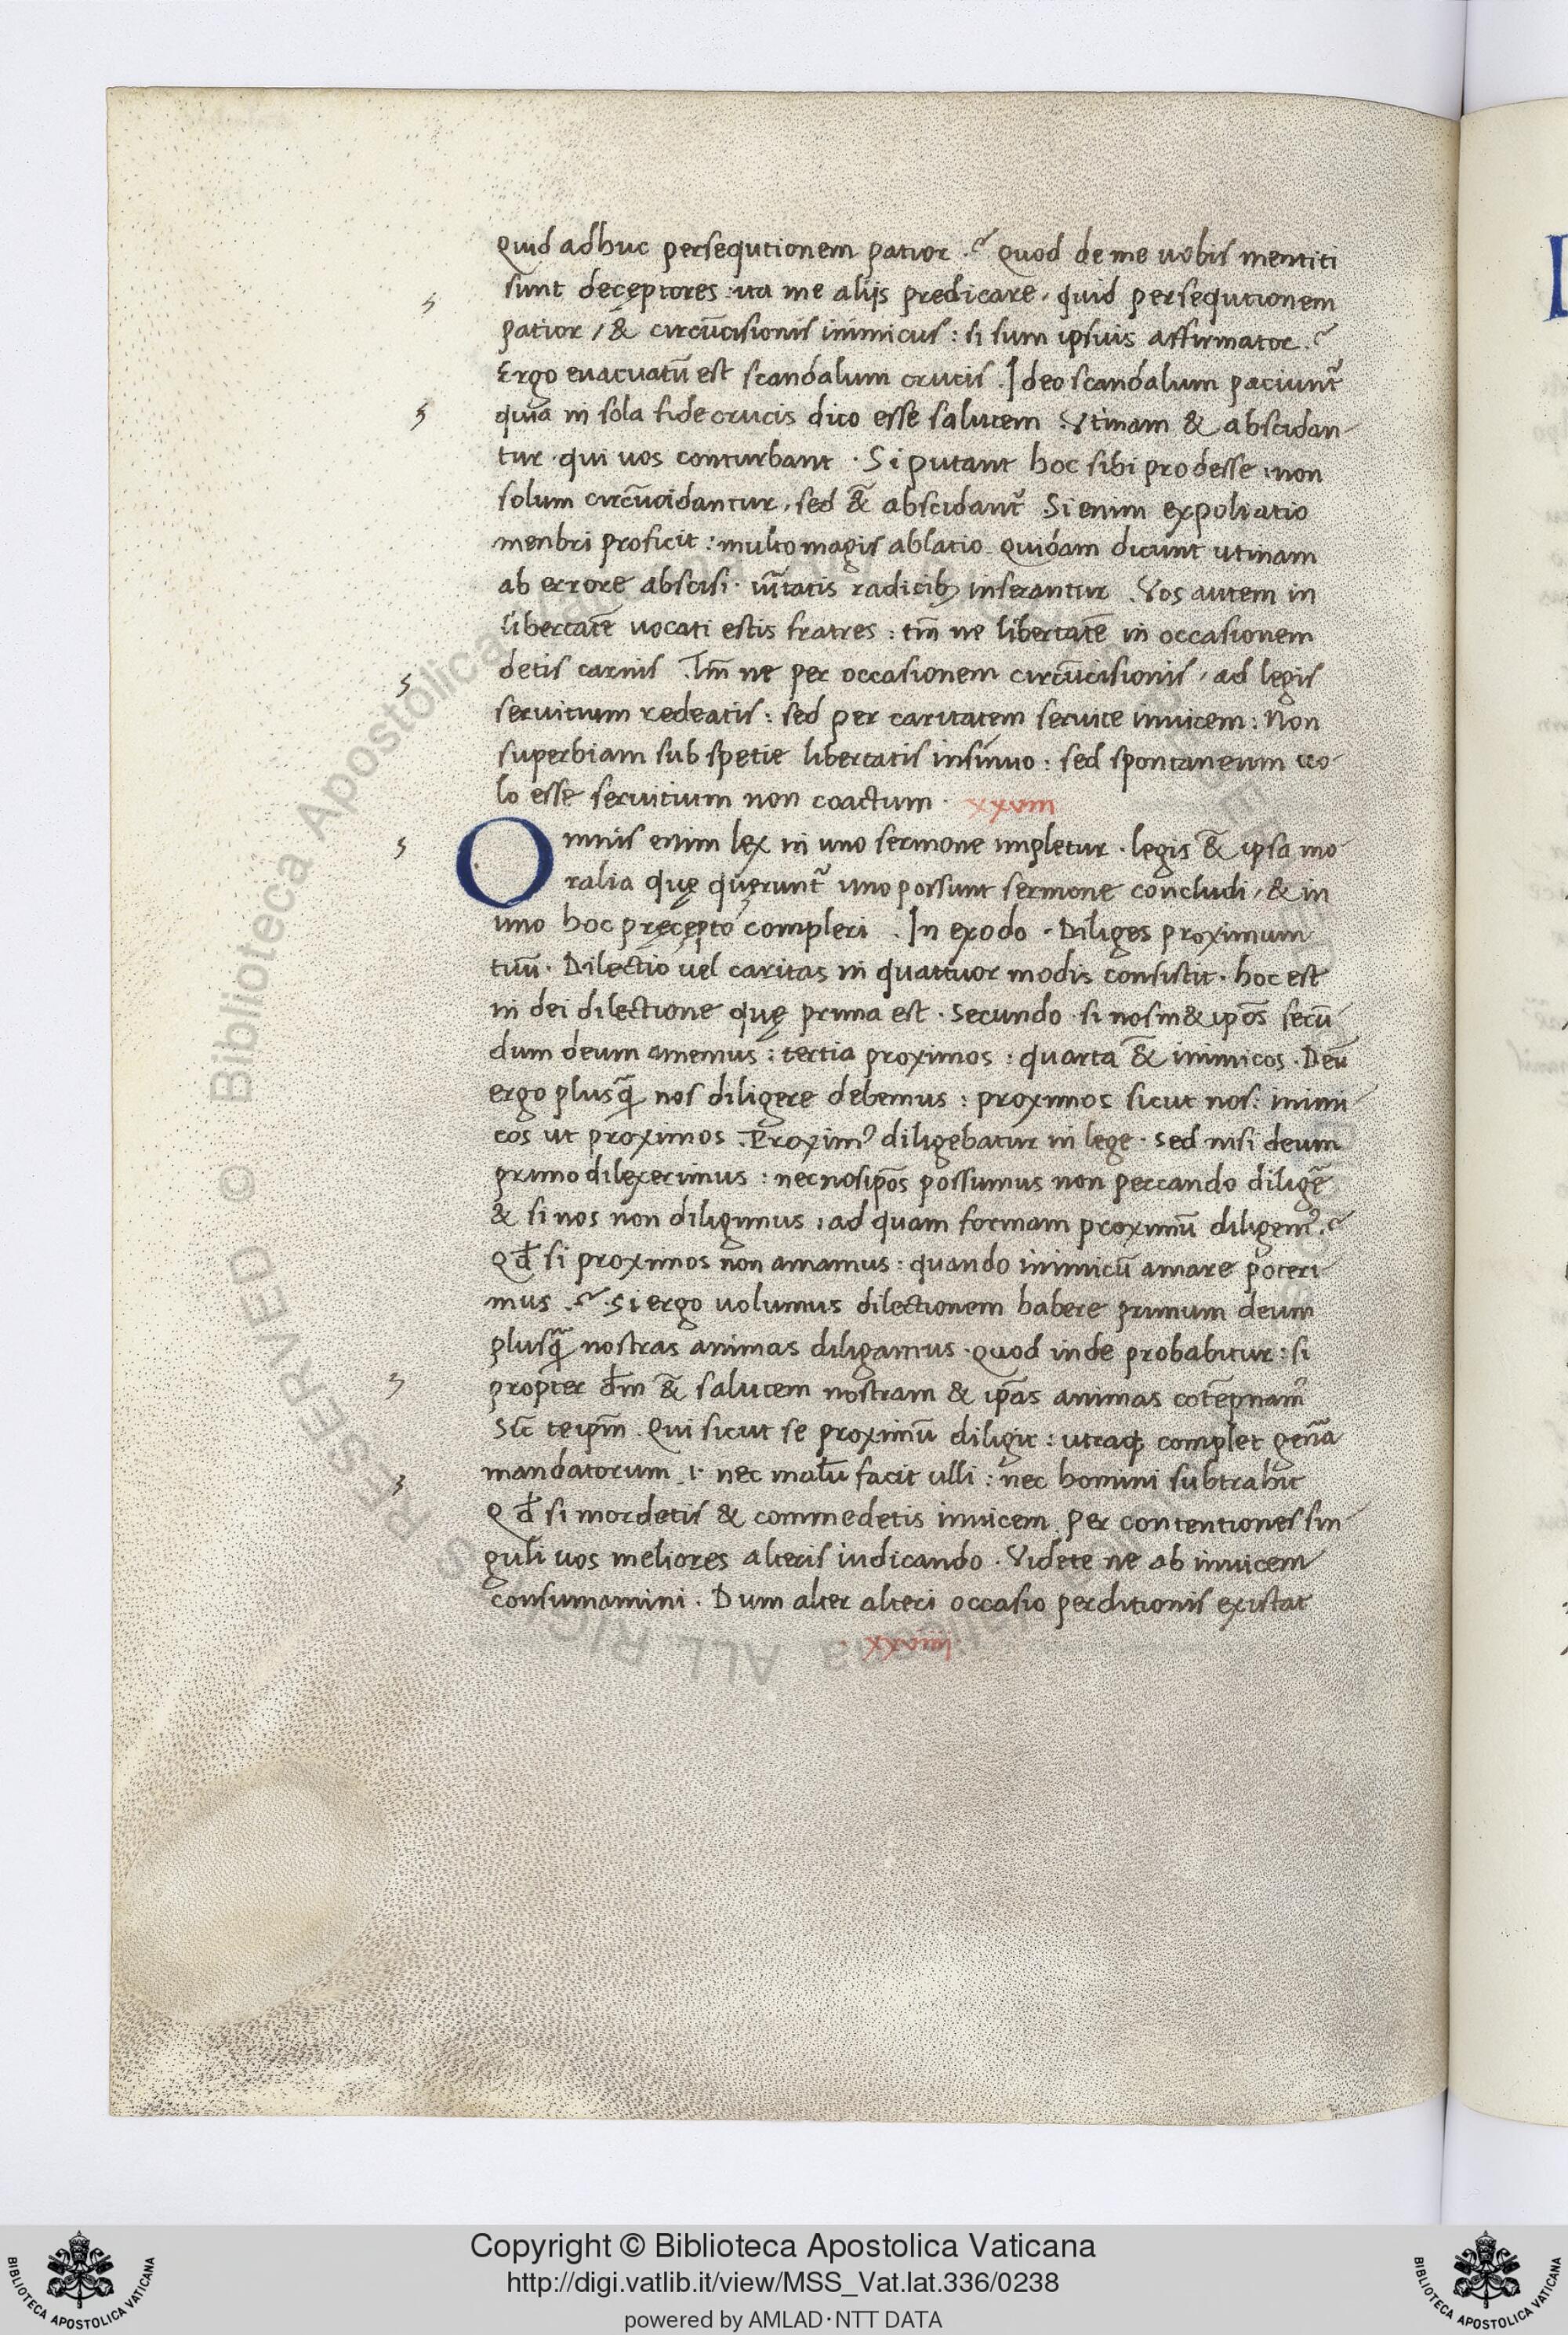 Quid adhuc persequtionem patior .? Quod de me uobis mentiti
sunt decęptores : ita me alijs predicare , quid persequtionem
patior / & circũcisionis inimicus : si sum ipsius affirmator .?
Ergo euacuatũ est scandalum crucis . Ideo scandalum paciunt᷑
quia in sola fide crucis dico esse salutem . Vtinam & abscidan-
tur · qui uos conturbant · Si putant hoc sibi prodesse : non
solum circũcidantur , sed &̃ abscidant᷑ . Si enim expoliatio
menbri proficit : multo magis ablatio . Quidam dicunt utinam
ab errore abscisi · uĩtatis radicibꝫ inserantur . Vos autem in
libertatẽ uocati estis fratres : tm̃ ne libertatẽ in occasionem
detis carnis . Tm̃ ne per occasionem circũcisionis / ad legis
seruitium redeatis : sed per caritatem seruite inuicem : Non
superbiam sub spetie libertatis insinuo : sed spontaneum uo-
lo esse seruitium non coactum . xxviii
Omnis enim lex in uno sermone impletur . legis &̃ ipsa mo-
ralia quę quęrunt᷑ uno possunt sermone concludi / & in
uno hoc pręcępto compleri . In exodo . Diliges proximum
tuũ . Dilectio uel caritas in quattuor modis consistit . hoc est
in dei dilectione quę prima est . Secundo si nosm&ip̃os secũ-
dum deum amemus : tertia proximos : quarta &̃ inimicos . Deũ
ergo plusꝗ̃ nos diligere debemus : proximos sicut nos : inimi-
cos ut proximos . Proximꝰ diligebatur in lege . Sed nisi deum
primo dilexerimus : nec nosip̃os possumus non peccando diligẽ
& si nos non diligimus : ad quam formam proximũ diligemꝰ .?
Qđ si proximos non amamus : quando inimicũ amare poteri-
mus .? Si ergo uolumus dilectionem habere primum deum
plusꝗ̃ nostras animas diligamus . Quod inde probabitur : si
propter dm̃ &̃ salutem nostram & ip̃as animas cotẽpnamꝰ
Sic̃ teip̃m . Qui sicut se proximũ diligit : utraqꝫ complet gen̄a
mandatorum .i. nec malũ facit ulli : nec homini subtrahit
Qđ si mordetis & commedetis inuicem . Per contentiones sin-
guli uos meliores alteris iudicando . Videte ne ab inuicem
consumamini . Dum alter alteri occasio perditionis existat
Copyright © Biblioteca Apostolica Vaticana
http://digi.vatlib.it/view/MSS_Vat.lat.336/0238
powered by AMLAD·NTT DATA